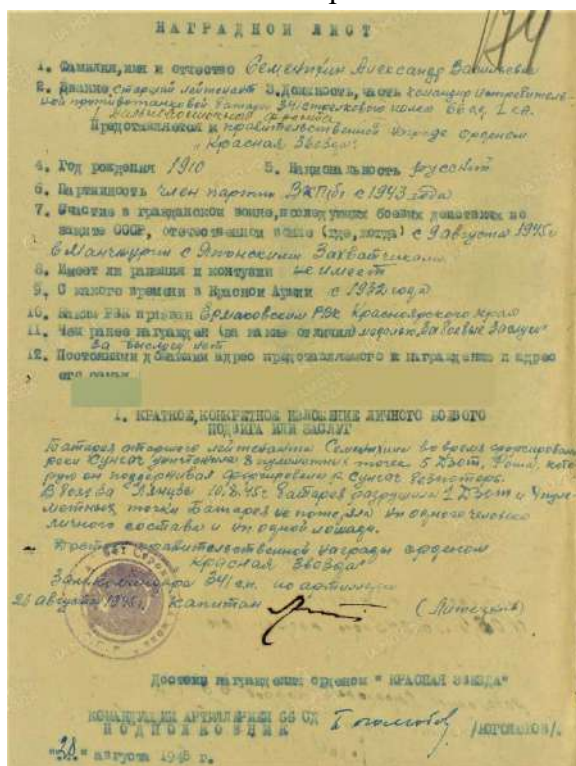 НАГРАДНОЙ ЛИСТ
1. Фамилия, имя и отчество Семенхин Александр Васильевич
2. Звание старший лейтенант 3. Должность, часть командир истребитель-
ной противотанковой батареи 341 стрелкового полка 66 сд 1 КА.
фронта
Представляется к правительственной награде орденом
"Красная Звезда"
4. Год рождения 1910 5. Национальность русский
6. Партийность член партии ВКП(б) с 1943 года
7. Участие в гражданской войне, последующих боевых действиях по
защите СССР, отечественной войне (где, когда) с 9 августа 1945г
в Манчжурии с Японскими Захватчиками
8. Имеет ли ранения и контузии не имеет
9. С какого времени в Красной Армии с 1932 года
10. Каким РВК призван Ермаковским РВК Красноярского края
11. Чем ранее награжден (за какие отличия) медалью "За боевые Заслуги"
за выслугу лет
12. Постоянный домашний адрес представляемого к награждению и адрес
его семьи
1. КРАТКОЕ, КОНКРЕТНОЕ ИЗЛОЖЕНИЕ ЛИЧНОГО БОЕВОГО
ПОДВИГА ИЛИ ЗАСЛУГ
Батарея старшего лейтенанта Семенхина во время форсирования
реки Сунгач уничтожила 8 пулеметных точек 5 Дзот, Рота, кото-
рую он поддерживал форсировала р. Сунгач без потерь.
В бою за 10.8.45г батарея разрушила 2 Дзот и 4 пуле-
метных точки Батарея не потеряла ни одного человека
личного состава и ни одной лошади.
правительственной награды орденом
"Красная Звезда"
Зам. командира 341 сп. по артиллерии
26 августа 1945г. капитан
Достоин награждения орденом "КРАСНАЯ ЗВЕЗДА"
КОМАНДУЮЩИЙ АРТИЛЛЕРИЕЙ 66 СД
ПОДПОЛКОВНИК
"28" августа 1945 г.